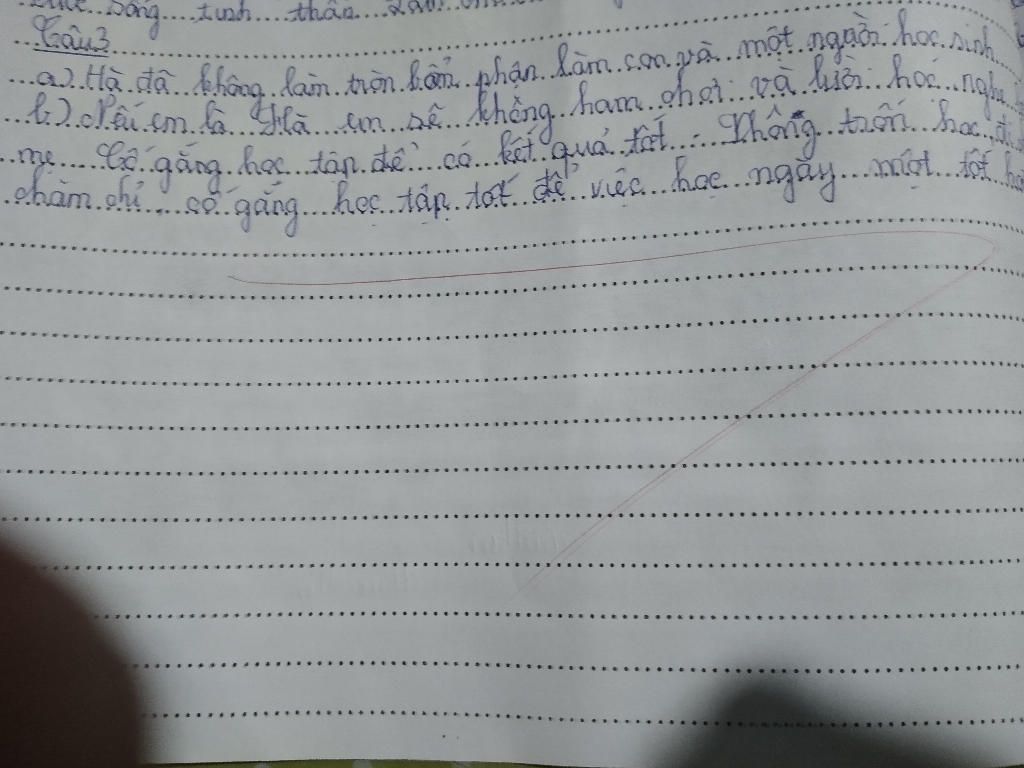 sống tinh thần
Câu 3
a) Hà đã không làm tròn bổn phận làm con và một người học sinh
b) Nếu em là Hà em sẽ không ham chơi và lười học nghe
mẹ Cố gắng học tập để có kết quả tốt. Không trốn học, đi
chăm chỉ cố gắng học tập tốt để việc học ngày một tốt